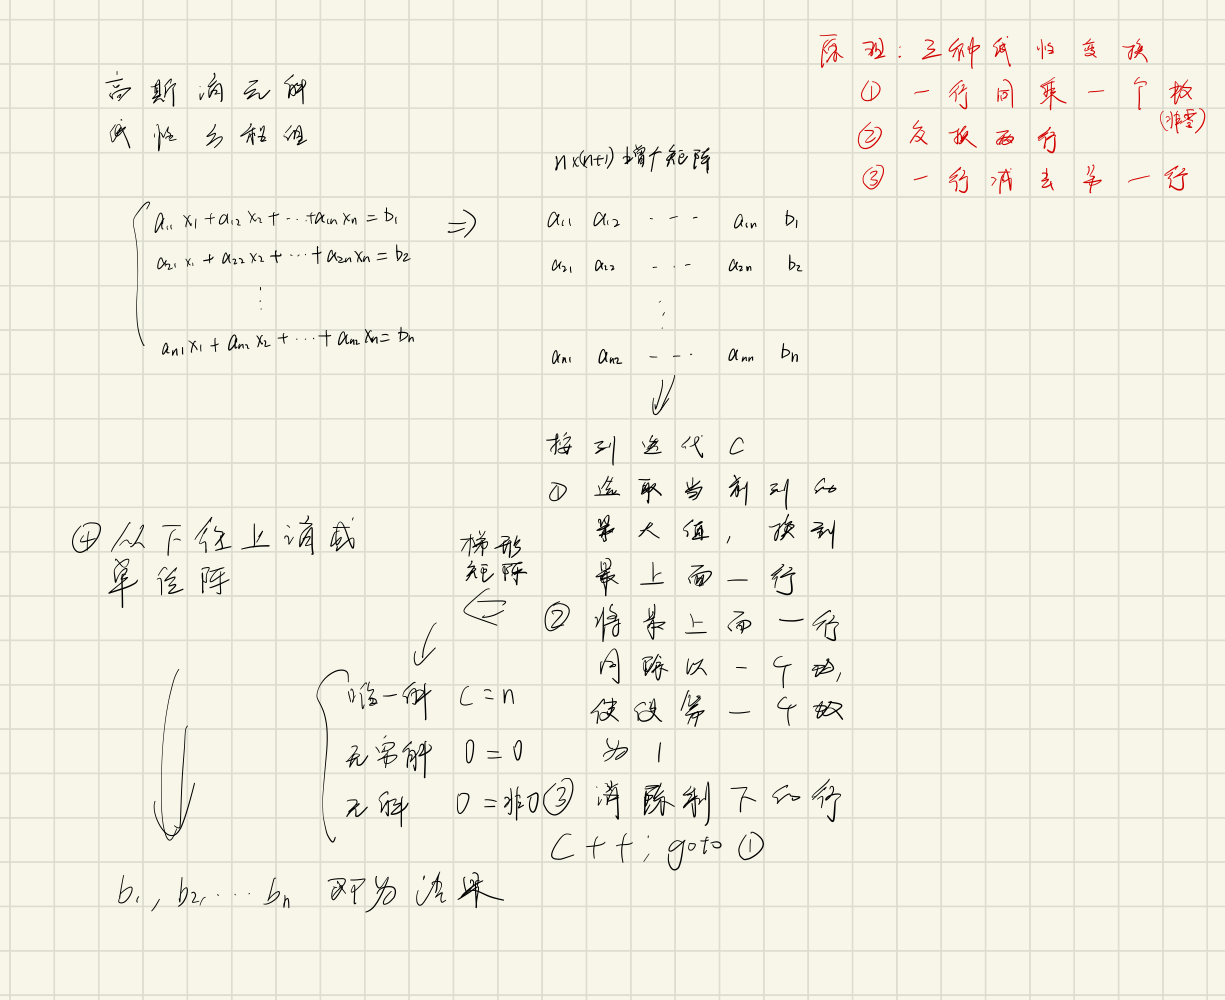 高斯消元解
线性方程组
原理：三种线性变换
① 一行同乘一个数
(非零)
② 交换两行
③ 一行减去另一行
n×(n+1) 增广矩阵
a11 x1 + a12 x2 + ··· + a1n xn = b1
a21 x1 + a22 x2 + ··· + a2n xn = b2
⋮
an1 x1 + an2 x2 + ··· + an2 xn = bn
⇒
a11 a12 --- a1n b1
a21 a22 ... a2n b2
⋮
an1 an2 --- ann bn
按列迭代 C
① 选取当前列的
最大值，换到
最上面一行
② 将最上面一行
同除以一个数,
使得第一个数
为 1
③ 消除剩下的行
C++; goto ①
梯形
矩阵
唯一解 C = n
无穷解 0 = 0
无解 0 = 非0
④ 从下往上消成
单位阵
b1, b2, ··· bn 即为结果